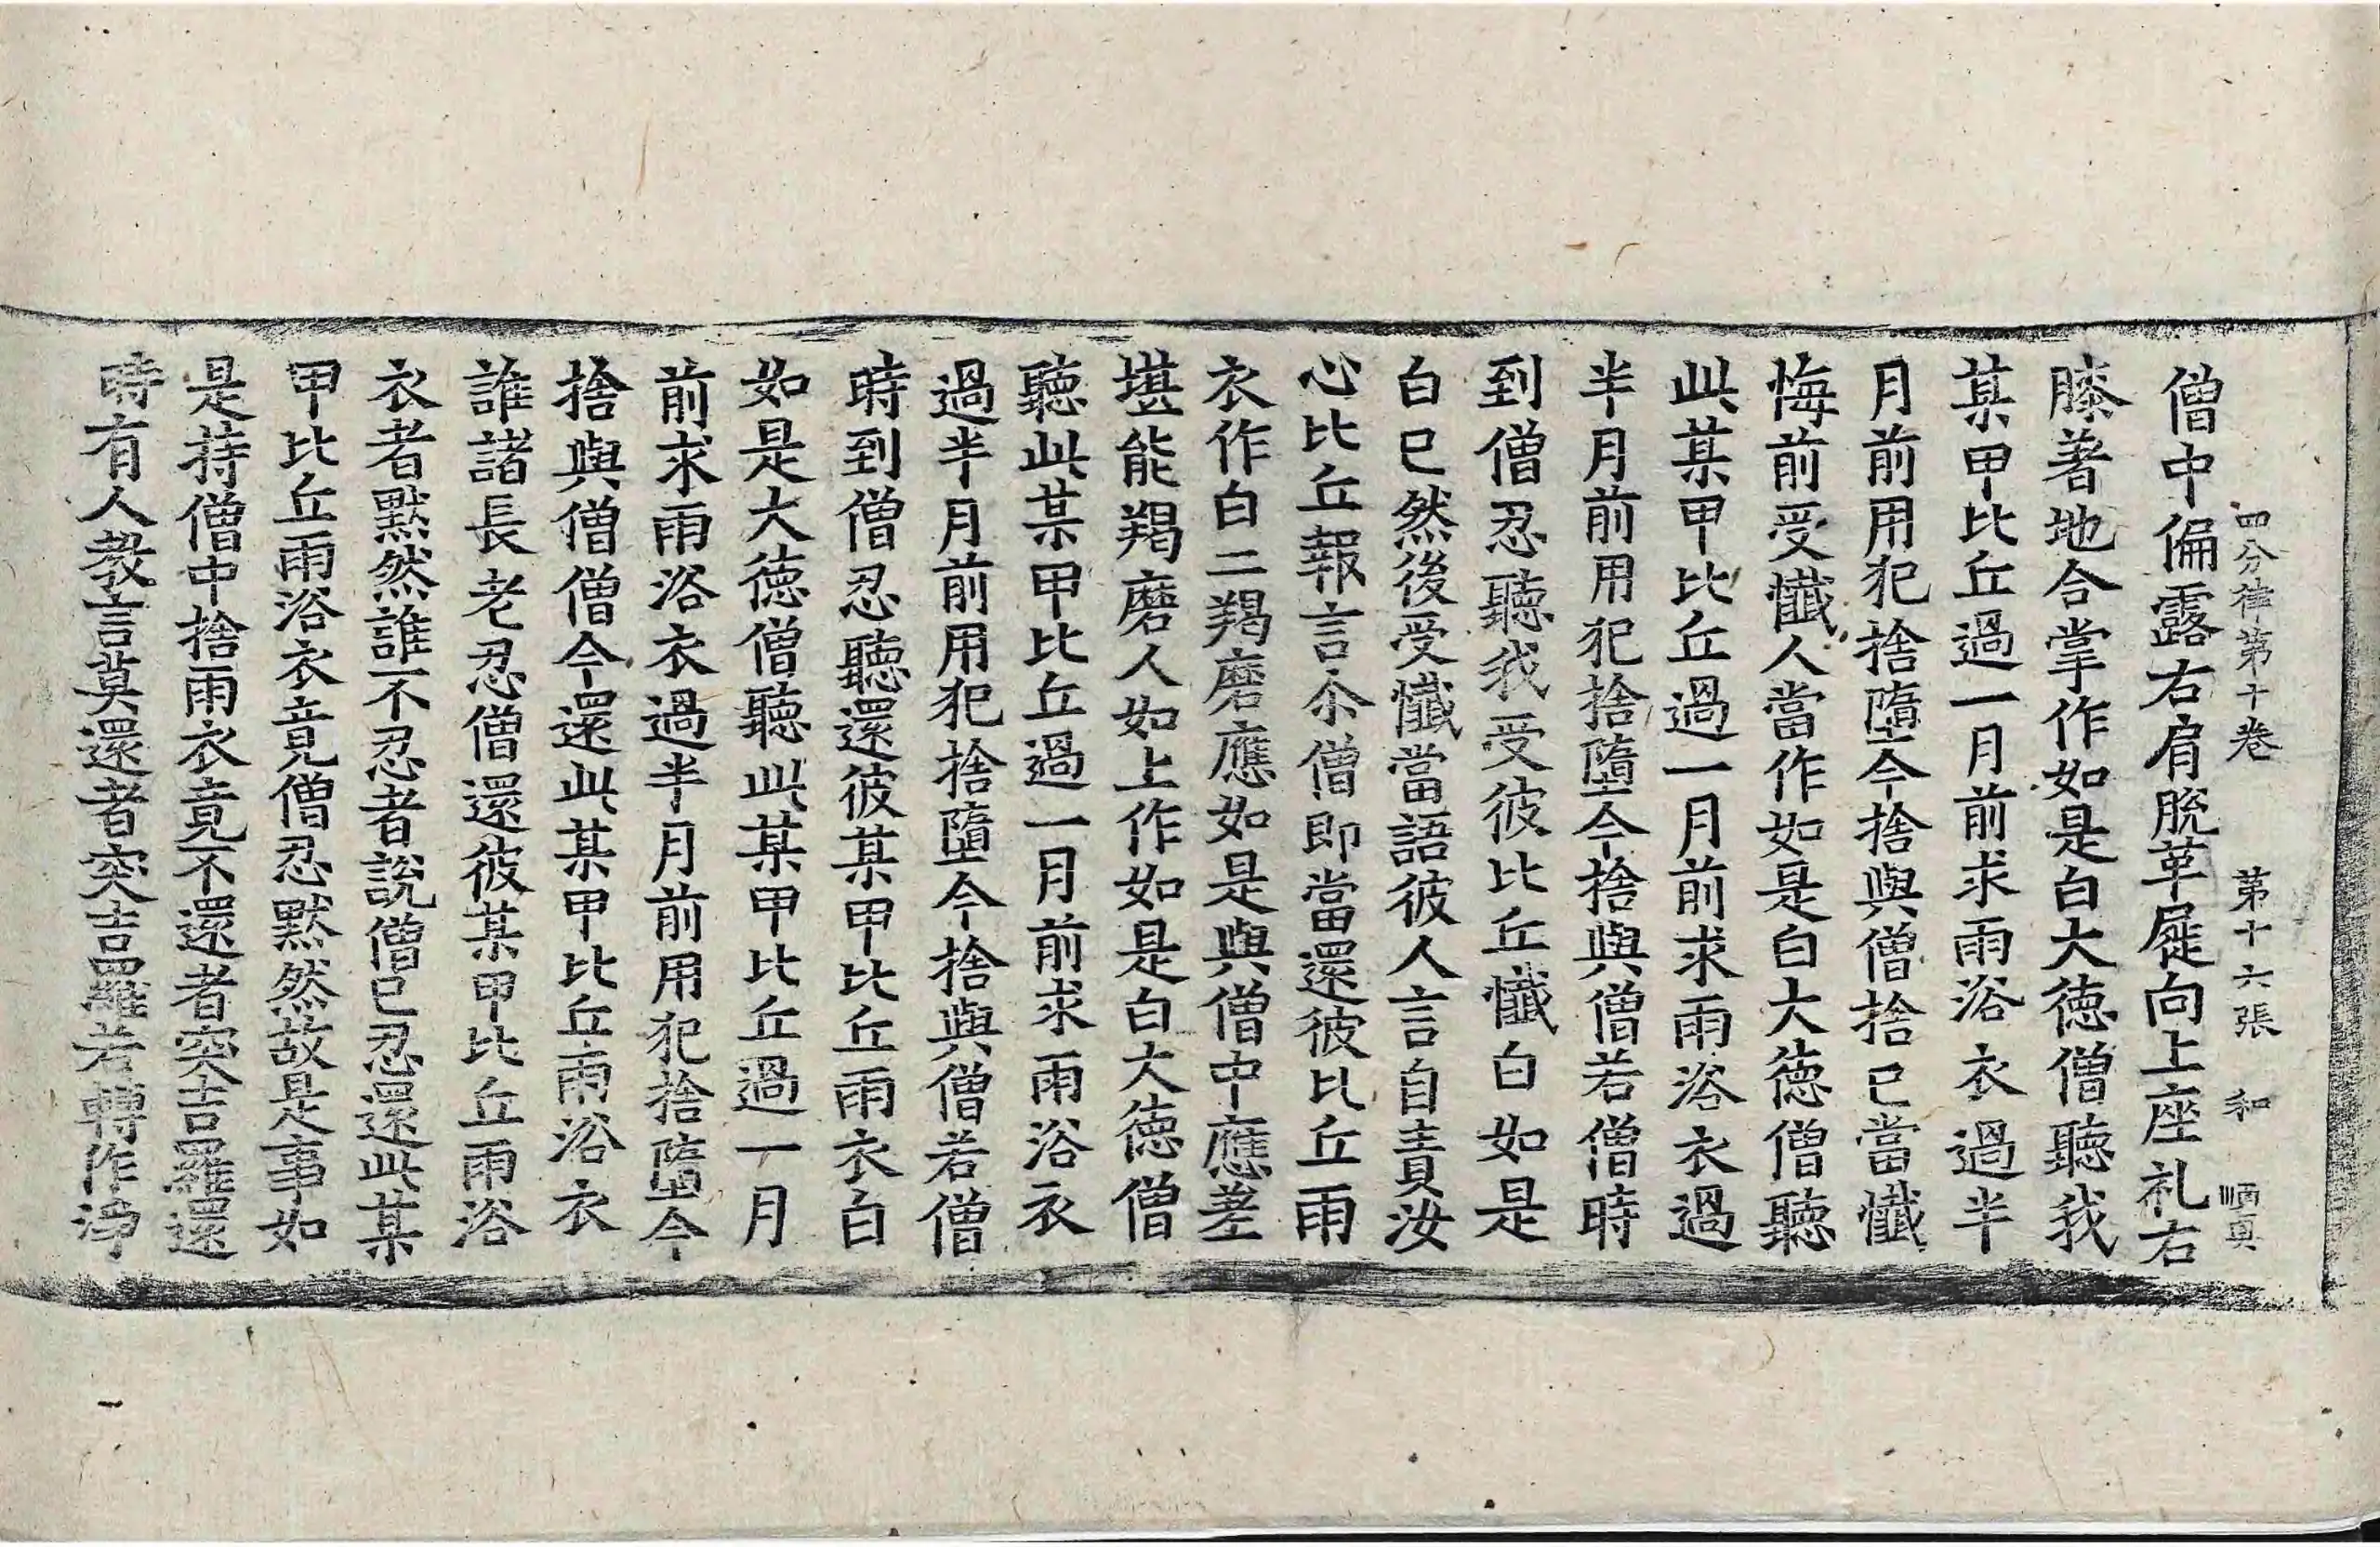 四分律第十卷 第十六張 和
僧中偏露右肩脫革屣向上座礼右
膝著地合掌作如是白大德僧聽我
某甲比丘過一月前求雨浴衣過半
月前用犯捨墮今捨與僧捨已當懺
悔前受懺人當作如是白大德僧聽
此某甲比丘過一月前求雨浴衣過
半月前用犯捨墮今捨與僧若僧時
到僧忍聽我受彼比丘懺白如是
白已然後受懺當語彼人言自責汝
心比丘報言尒僧即當還彼比丘雨
衣作白二羯磨應如是與僧中應差
堪能羯磨人如上作如是白大德僧
聽此某甲比丘過一月前求雨浴衣
過半月前用犯捨墮今捨與僧若僧
時到僧忍聽還彼某甲比丘雨衣白
如是大德僧聽此某甲比丘過一月
前求雨浴衣過半月前用犯捨墮今
捨與僧僧今還此某甲比丘雨浴衣
誰諸長老忍僧還彼某甲比丘雨浴
衣者默然誰不忍者說僧已忍還此某
甲比丘雨浴衣竟僧忍默然故是事如
是持僧中捨雨衣竟不還者突吉羅還
時有人教言莫還者突吉羅若轉作淨